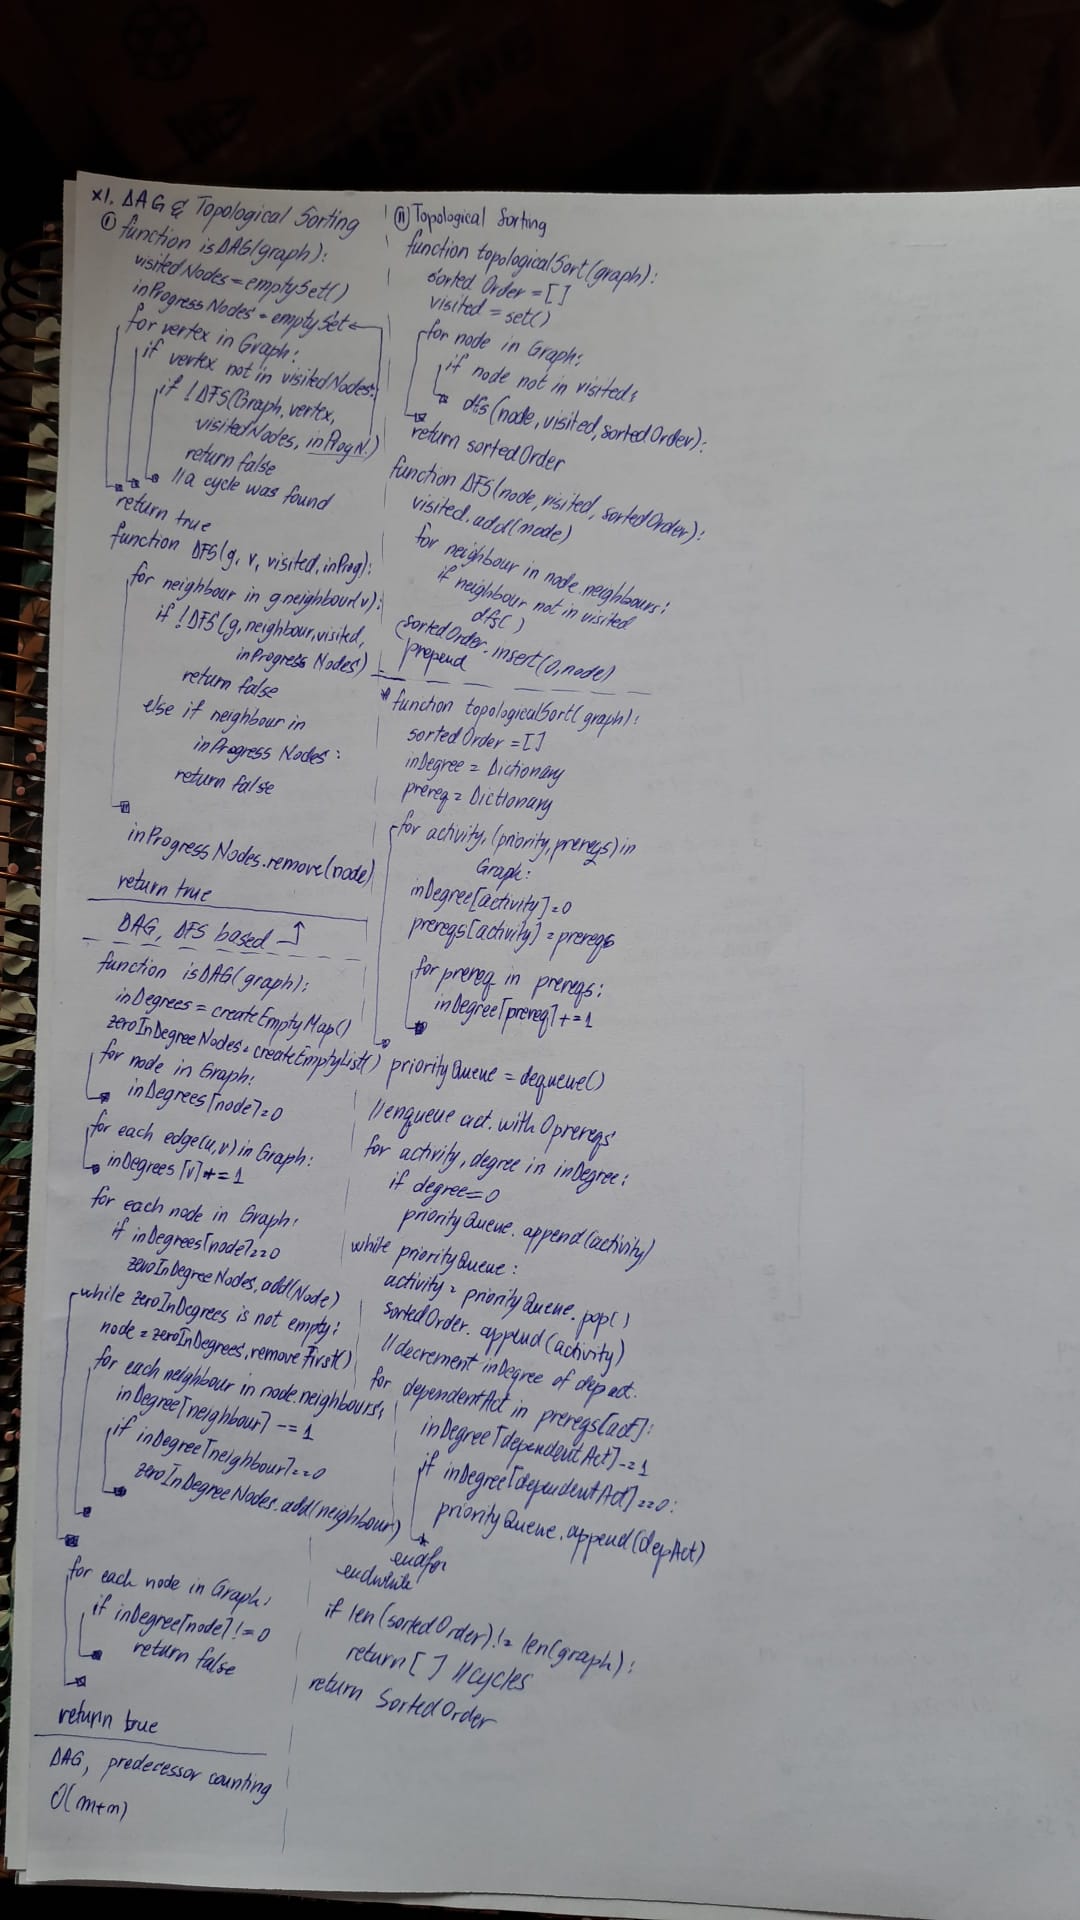 XI. DAG & Topological Sorting
① function isDAG(graph):
visitedNodes = emptySet()
inProgressNodes = emptySet
for vertex in Graph:
if vertex not in visitedNodes:
if !DFS(Graph, vertex,
visitedNodes, inProgN.)
return false
// a cycle was found
return true
function DFS(g, v, visited, inProg):
for neighbour in g.neighbour(v):
if !DFS(g, neighbour, visited,
inProgress Nodes)
return false
else if neighbour in
inProgress Nodes:
return false
inProgress Nodes.remove(node)
return true
DAG, DFS based
function isDAG(graph):
inDegrees = createEmptyMap()
zeroInDegreeNodes = createEmptyList()
for node in Graph:
inDegrees[node]=0
for each edge(u,v) in Graph:
inDegrees[v]+=1
for each node in Graph:
if inDegrees[node]==0
zeroInDegreeNodes.add(Node)
while zeroInDegrees is not empty:
node = zeroInDegrees.removeFirst()
for each neighbour in node.neighbours:
inDegree[neighbour] -= 1
if inDegree[neighbour]==0
zeroInDegreeNodes.add(neighbour)
for each node in Graph:
if inDegree[node] != 0
return false
return true
DAG, predecessor counting
O(m+n)
⑪ Topological Sorting
function topologicalSort(graph):
sorted Order = []
visited = set()
for node in Graph:
if node not in visited:
dfs(node, visited, sortedOrder):
return sortedOrder
function DFS(node, visited, sortedOrder):
visited.add(node)
for neighbour in node.neighbours:
if neighbour not in visited
dfs()
sortedOrder.insert(0,node)
prepend
* function topologicalSort(graph):
sortedOrder = []
inDegree = Dictionary
prereq = Dictionary
for activity, (priority, prereqs) in
Graph:
inDegree[activity]=0
prereqs[activity] = prereqs
for prereq in prereqs:
inDegree[prereq] += 1
priorityQueue = dequeue()
// enqueue act. with 0 prereqs
for activity, degree in inDegree:
if degree==0
priorityQueue.append(activity)
while priorityQueue:
activity = priorityQueue.pop()
sortedOrder.append(activity)
// decrement inDegree of dep act.
for dependentAct in prereqs[act]:
inDegree[dependentAct] -= 1
if inDegree[dependentAct]==0:
priorityQueue.append(depAct)
endfor
endwhile
if len(sortedOrder) != len(graph):
return [] // cycles
return SortedOrder